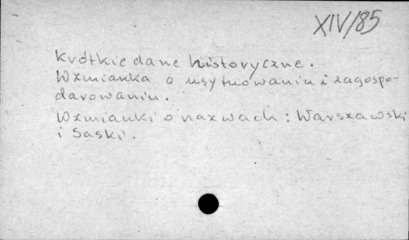 XIV/85
Krótkie dane historyczne.
Wzmianka o usytuowaniu i zagospo-
darowaniu.
Wzmianki o nazwach: Warszawski
i Saski.